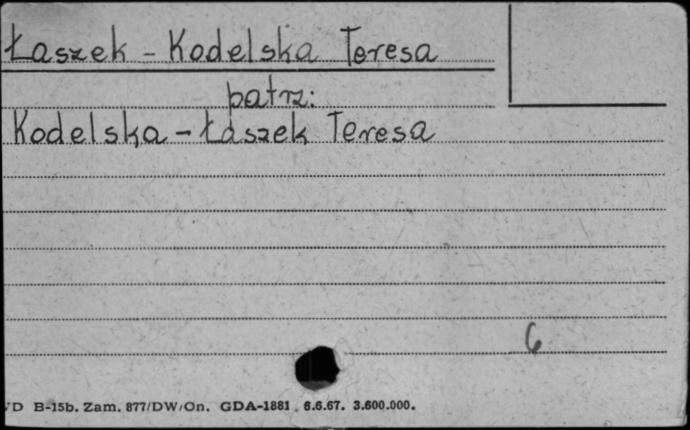 Łaszek - Kodelska Teresa
patrz:
Kodelska - Łaszek Teresa
6
D B-15b. Zam. 877/DW/On. GDA-1881 6.6.67. 3.600.000.